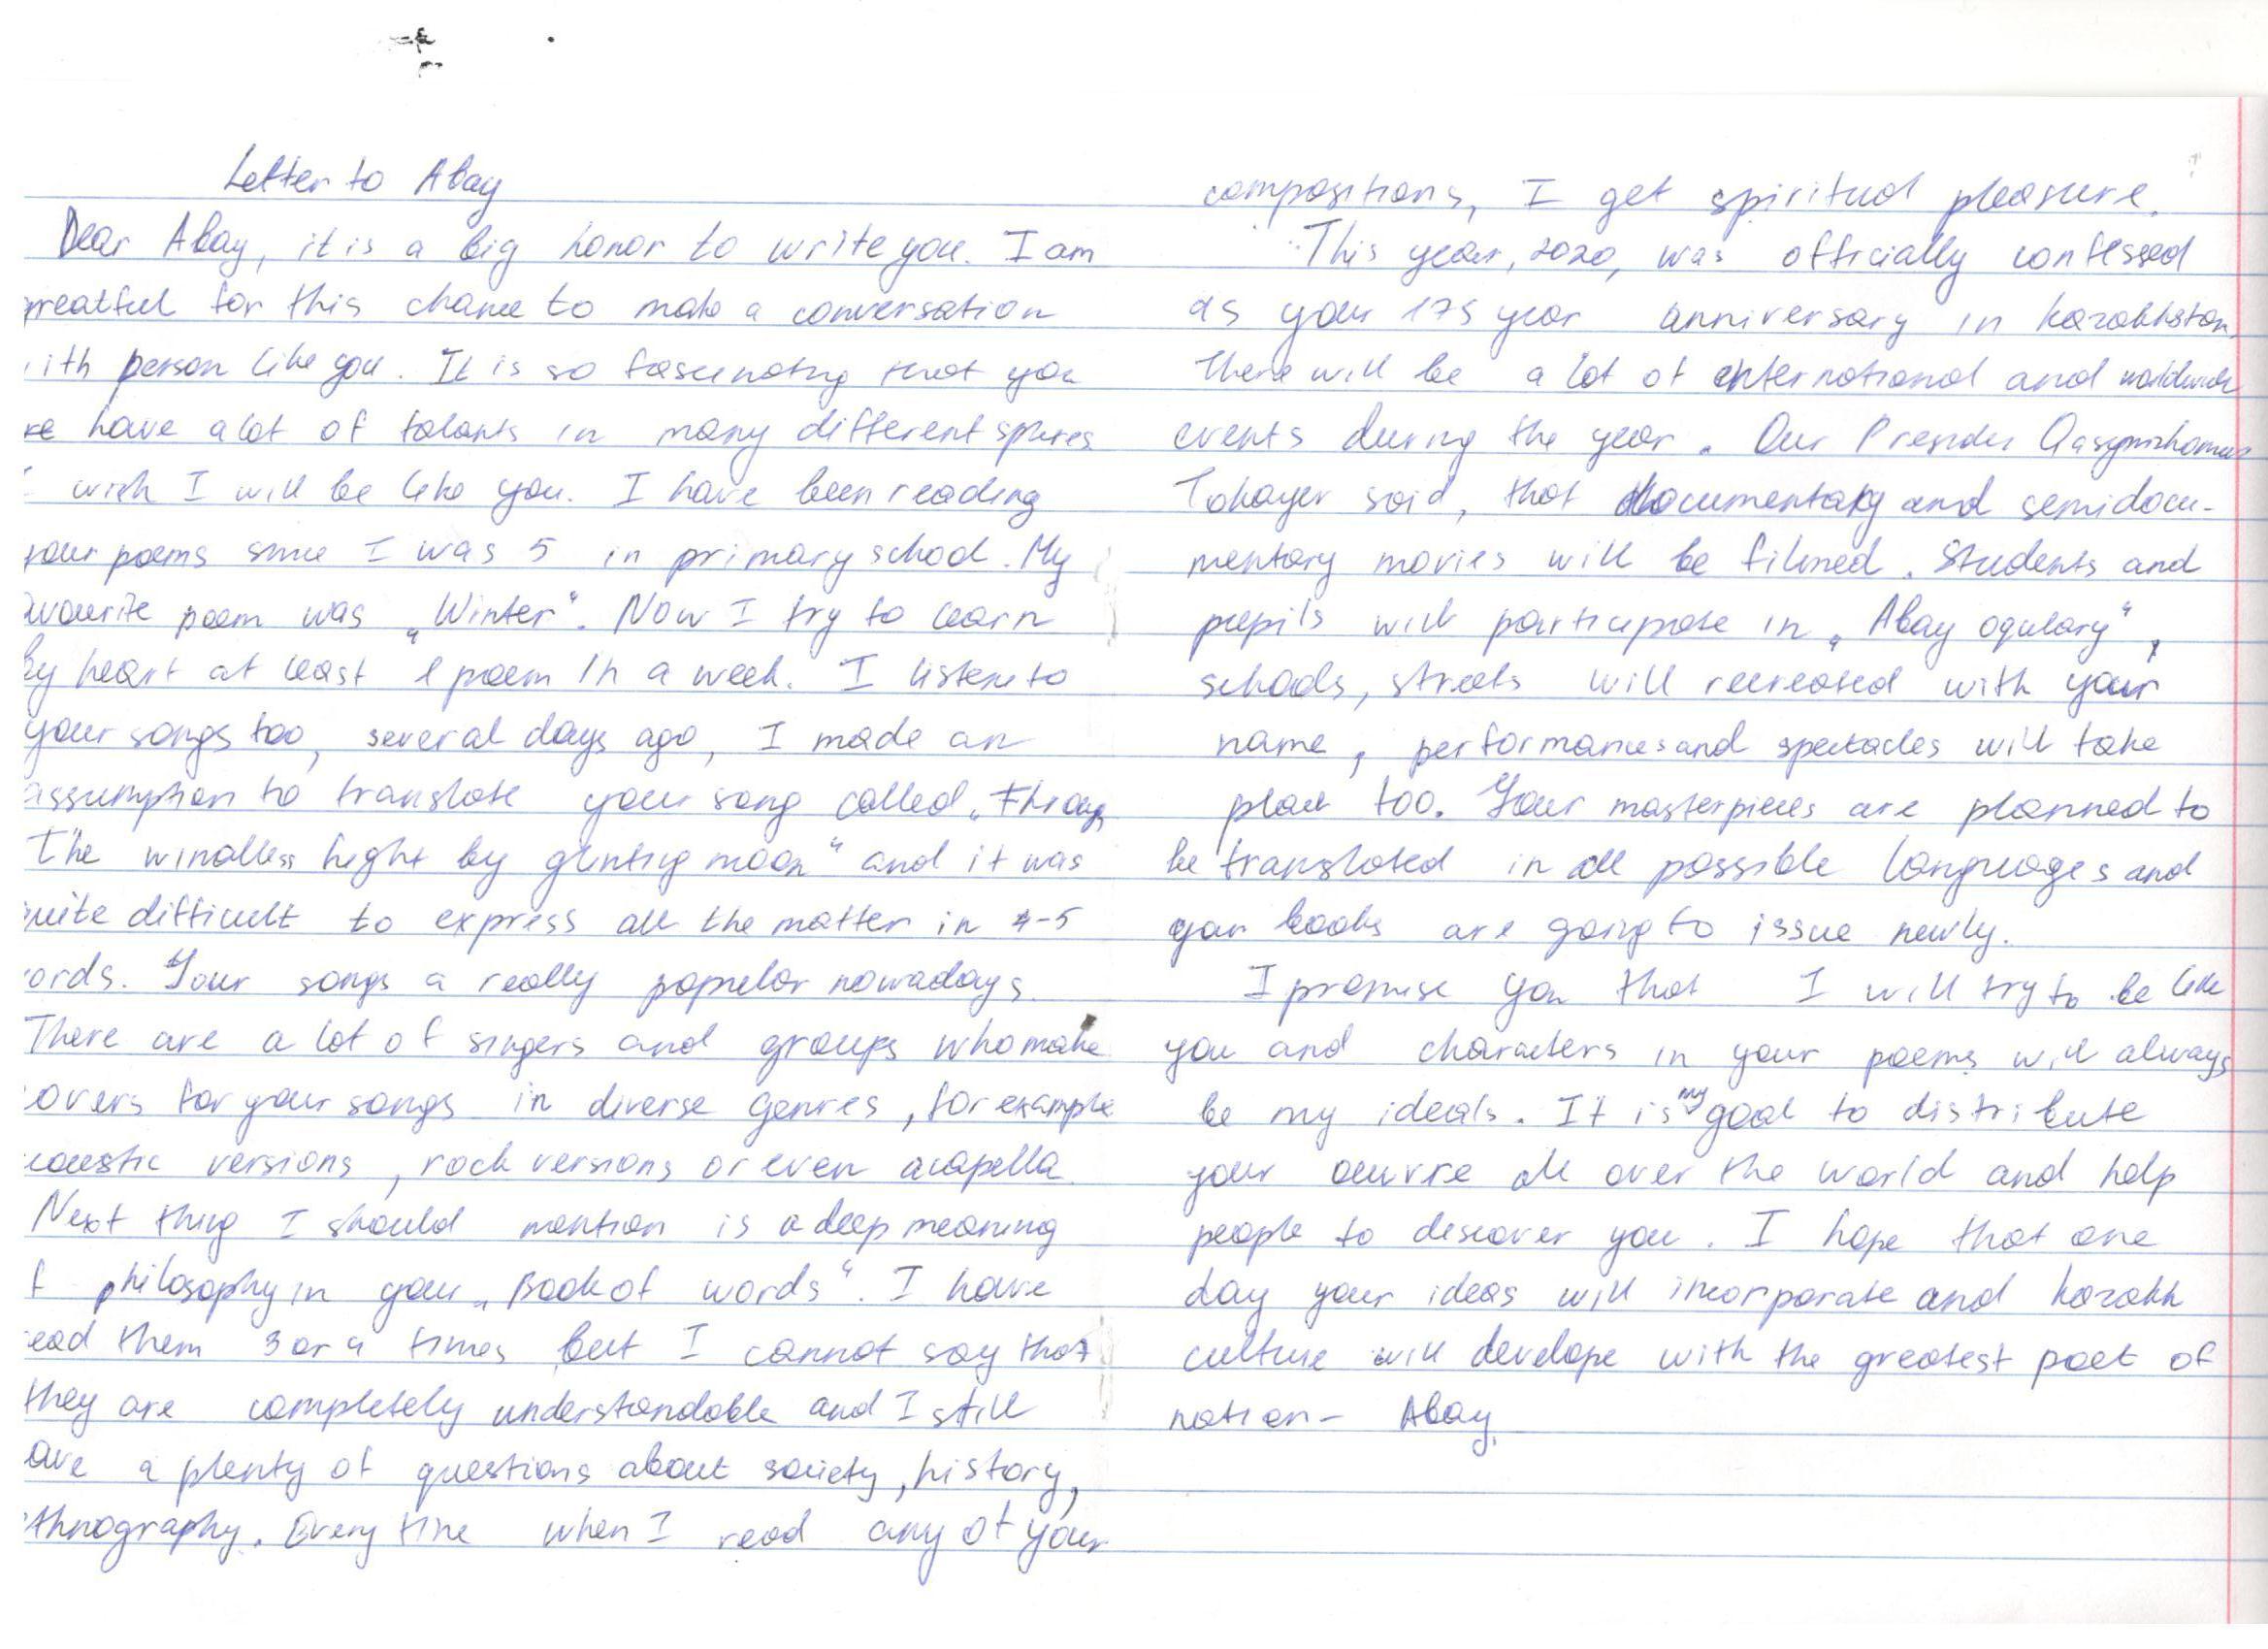 Letter to Abay
Dear Abay, it is a big honor to write you. I am
greatful for this chance to make a conversation
ith person like you. It is so fascinating that you
have a lot of talants in many different spheres
I wish I will be like you. I have been reading
your poems since I was 5 in primary school. My
avourite poem was „Winter“. Now I try to learn
by heart at least 1 poem in a week. I listen to
your songs too, several days ago, I made an
assumption to translate your song called „Throug
the windless hight by glinting moon“ and it was
quite difficult to express all the matter in 4-5
ords. Your songs a really popular nowadays.
There are a lot of singers and groups who make
covers for your songs in diverse genres, for example
coustic versions, rock versions or even acapella.
Next thing I should mention is a deep meaning
f philosophy in your „Book of words“. I have
ead them 3 or 4 times but I cannot say that
they are completely understandable and I still
ave a plenty of questions about society, history,
thnography. Every time when I read any of your
compositions, I get spiritual pleasure.
This year, 2020, was officially confessed
as your 175 year anniversary in Kazakhstan.
There will be a lot of international and worldwide
events during the year. Our Qasymzhomart
Tokayev said, that documentary and semidocu-
mentary movies will be filmed. Students and
pupils will participate in „Abay oqulary“,
schools, streets will recreated with your
name, performances and spectacles will take
place too. Your masterpieces are planned to
be translated in all possible languages and
your books are going to issue newly.
I promise you that I will try to be like
you and characters in your poems will always
be my ideals. It is my goal to distribute
your oeuvre all over the world and help
people to discover you. I hope that one
day your ideas will incorporate and kazakh
culture will develope with the greatest poet of
nation - Abay.